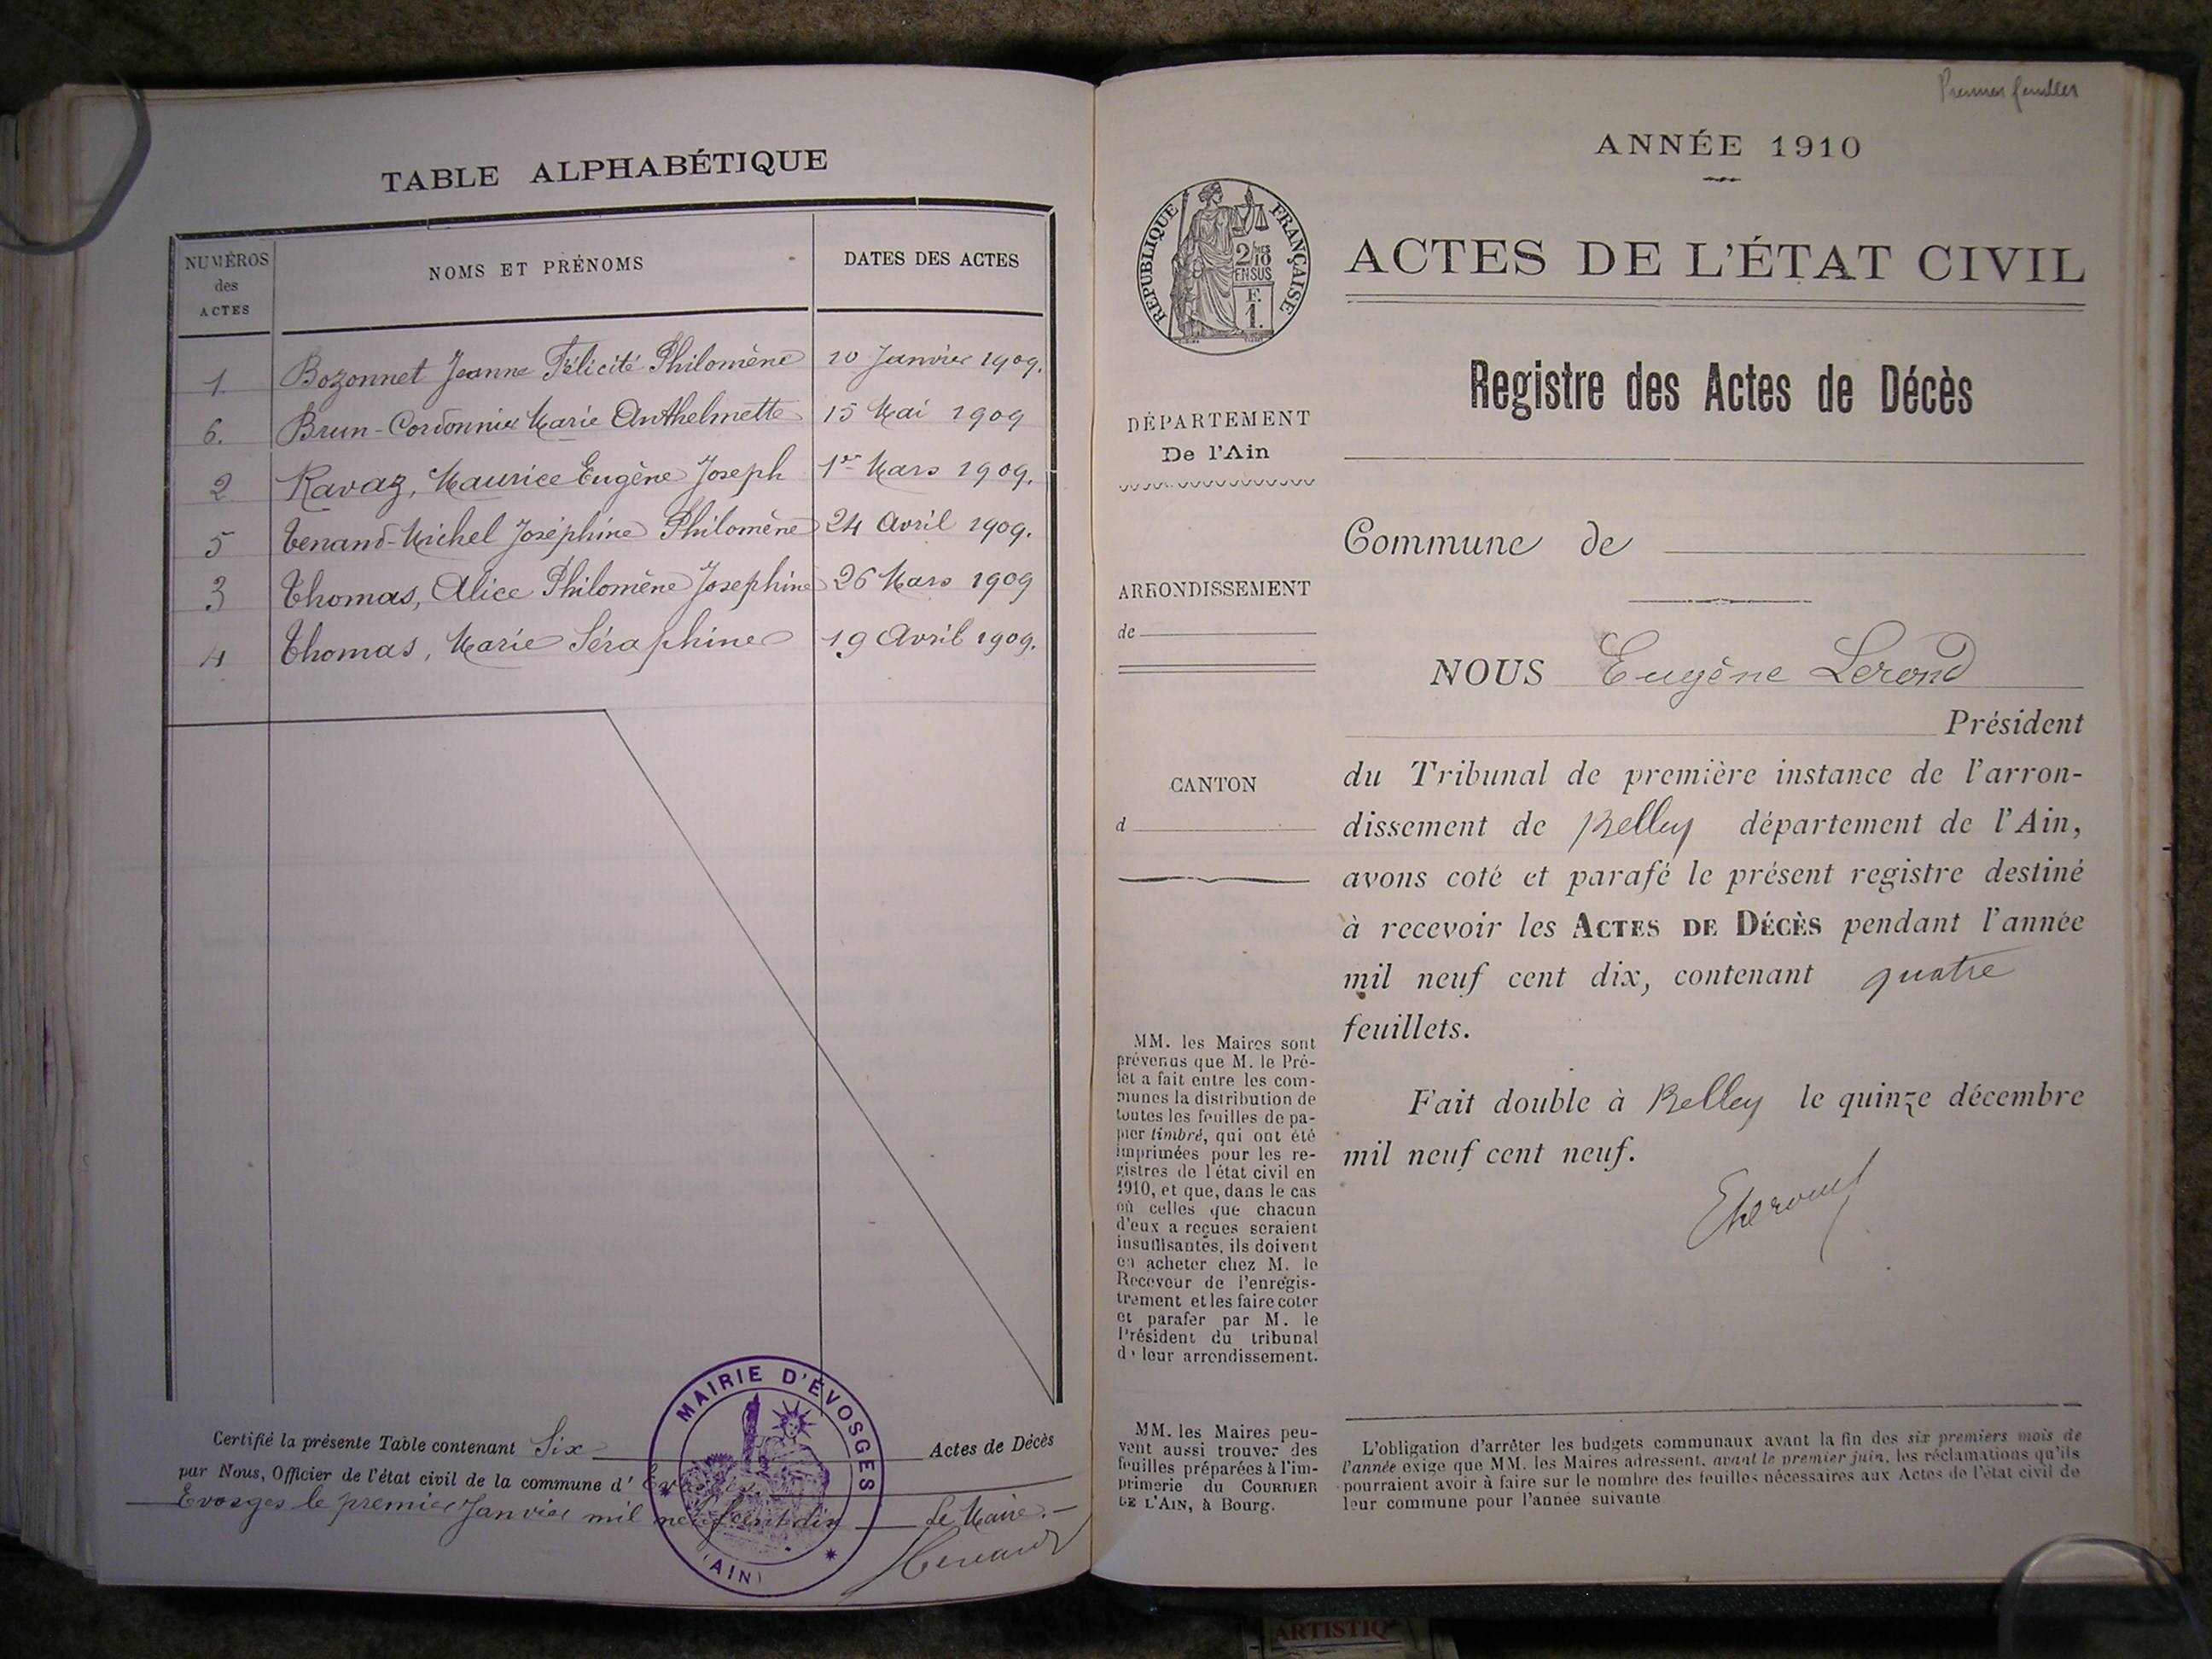 TABLE ALPHABÉTIQUE
NUMÉROS des ACTES
NOMS ET PRÉNOMS
DATES DES ACTES
1. Bozonnet Jeanne Félicité Philomène 10 Janvier 1909.
6. Brun-Cordonnier Marie Anthelmette 15 Mai 1909
2 Ravaz, Maurice Eugène Joseph 1er Mars 1909.
5 Tenand-Michel Joséphine Philomène 24 Avril 1909.
3 Thomas, Alice Philomène Josephine 26 Mars 1909
4 Thomas, Marie Séraphine 19 Avril 1909.
Certifié la présente Table contenant Six Actes de Décès
par Nous, Officier de l'état civil de la commune d' Evosges.
Evosges le premier Janvier mil neuf cent dix Le Maire.
Tenand
MAIRIE D'ÉVOSGES
(AIN)
Premier feuillet
ANNÉE 1910
RÉPUBLIQUE FRANÇAISE
2/10MES
EN SUS
F.
1.
ACTES DE L'ÉTAT CIVIL
Registre des Actes de Décès
DÉPARTEMENT
De l'Ain
ARRONDISSEMENT
de
CANTON
d
MM. les Maires sont
prévenus que M. le Pré-
fet a fait entre les com-
munes la distribution de
toutes les feuilles de pa-
pier timbré, qui ont été
imprimées pour les re-
gistres de l'état civil en
1910, et que, dans le cas
où celles que chacun
d'eux a reçues seraient
insuffisantes, ils doivent
en acheter chez M. le
Receveur de l'enregis-
trement et les faire coter
et parafer par M. le
Président du tribunal
de leur arrondissement.
MM. les Maires peu-
vent aussi trouver des
feuilles préparées à l'im-
primerie du COURRIER
DE L'AIN, à Bourg.
Commune de
NOUS Eugène Lerond
Président
du Tribunal de première instance de l'arron-
dissement de Belley département de l'Ain,
avons coté et parafé le présent registre destiné
à recevoir les ACTES DE DÉCÈS pendant l'année
mil neuf cent dix, contenant quatre
feuillets.
Fait double à Belley le quinze décembre
mil neuf cent neuf.
ELerond
L'obligation d'arrêter les budgets communaux avant la fin des six premiers mois de
l'année exige que MM. les Maires adressent, avant le premier juin, les réclamations qu'ils
pourraient avoir à faire sur le nombre des feuilles nécessaires aux Actes de l'état civil de
leur commune pour l'année suivante
ARTISTIQ